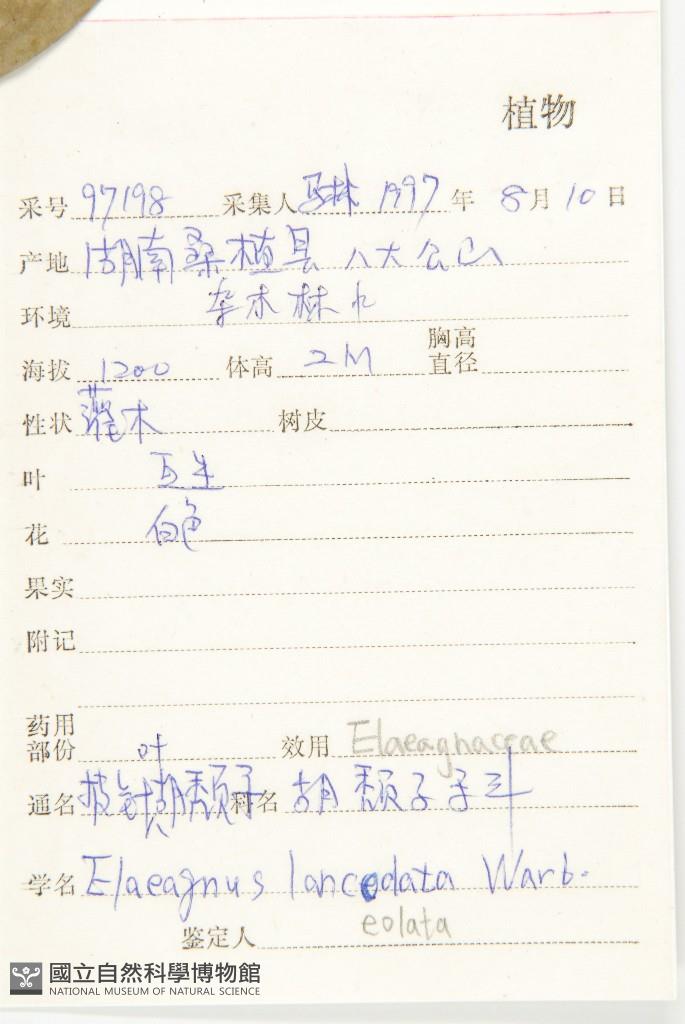 植物
采号 97198 采集人 林 1997 年 8 月 10 日
产地 湖南桑植县八大公山
环境 杂木林
胸高
海拔 1200 体高 2M 直径
性状 灌木 树皮
叶 互生
花 白色
果实
附记
药用
部份 叶 效用 Elaeagnaceae
通名 披针叶胡颓子 科名 胡颓子科
学名 Elaeagnus lancedata Warb.
eolata
鉴定人
國立自然科學博物館
NATIONAL MUSEUM OF NATURAL SCIENCE